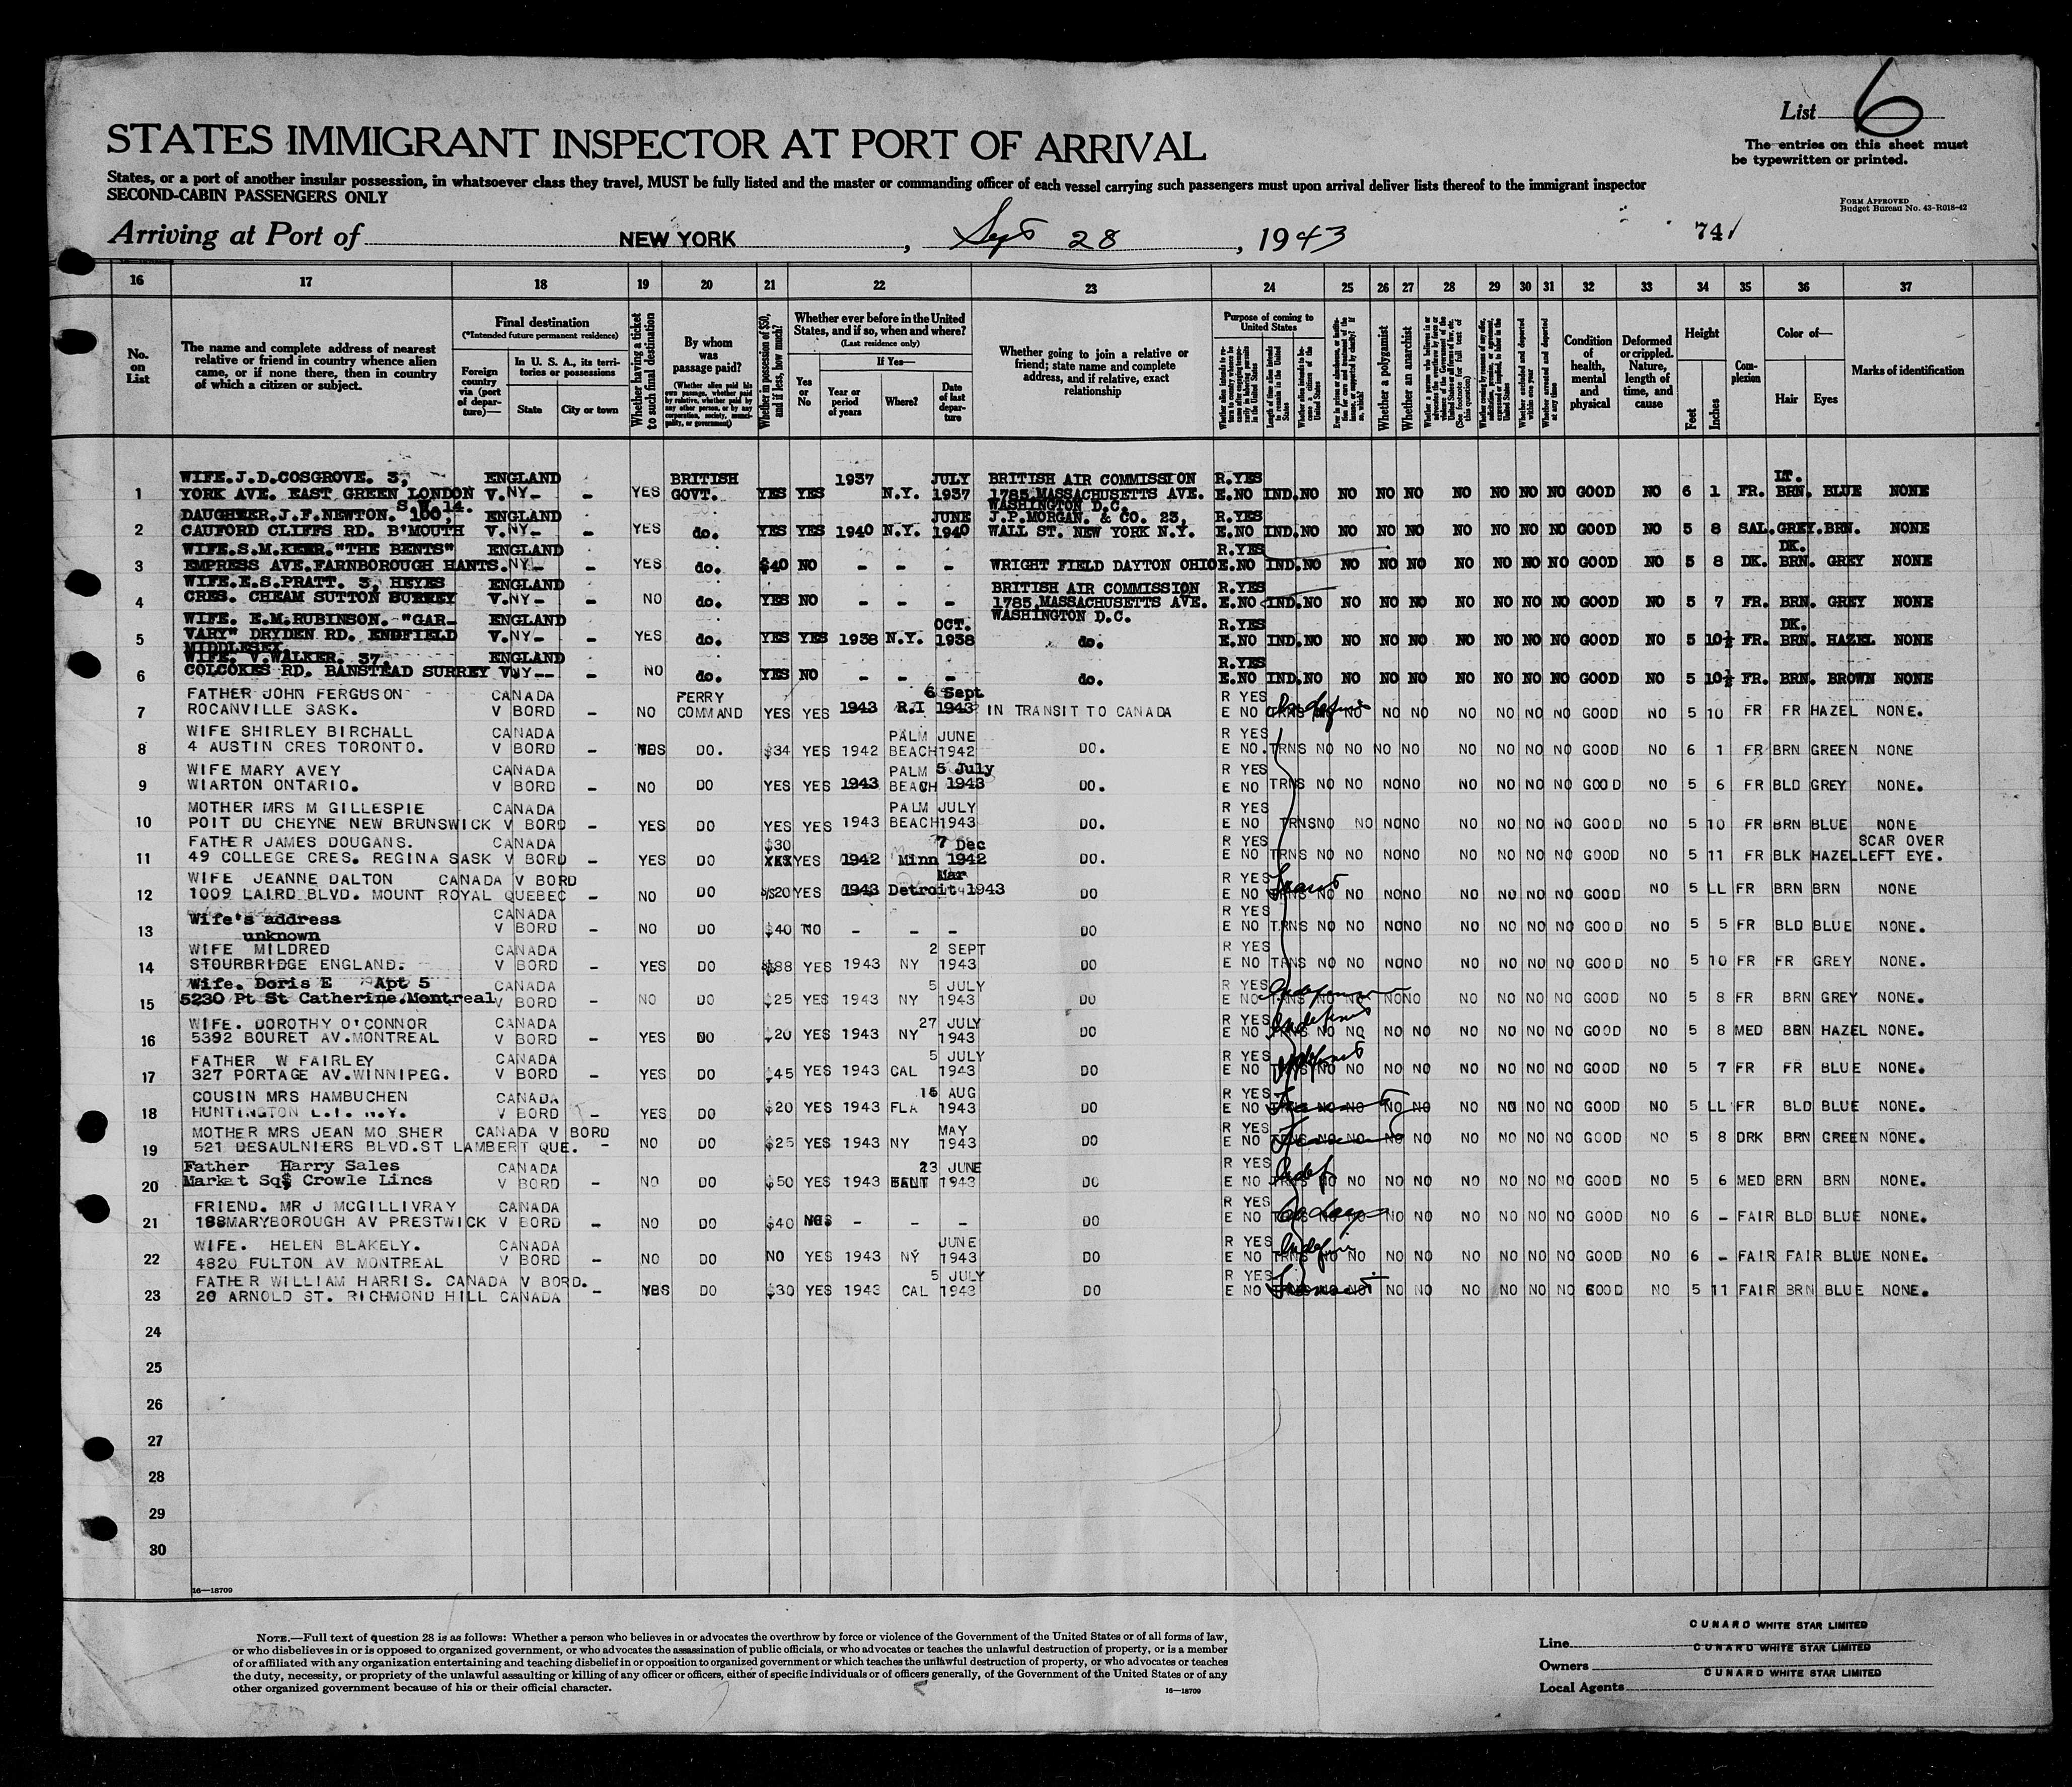 List 6
The entries on this sheet must
be typewritten or printed.
STATES IMMIGRANT INSPECTOR AT PORT OF ARRIVAL
States, or a port of another insular possession, in whatsoever class they travel, MUST be fully listed and the master or commanding officer of each vessel carrying such passengers must upon arrival deliver lists thereof to the immigrant inspector
SECOND-CABIN PASSENGERS ONLY
FORM APPROVED
Budget Bureau No. 43-R018-42
Arriving at Port of NEW YORK, Sept 28, 1943
741
16 17 18 19 20 21 22 23 24 25 26 27 28 29 30 31 32 33 34 35 36 37
No. on List
The name and complete address of nearest relative or friend in country whence alien came, or if none there, then in country of which a citizen or subject.
Final destination
(*Intended future permanent residence)
Foreign country via (port of departure)—
In U. S. A., its territories or possessions
State
City or town
Whether having a ticket to such final destination
By whom was passage paid?
(Whether alien paid his own passage, whether paid by relative, whether paid by any other person, or by any corporation, society, municipality, or government)
Whether in possession of $50, and if less, how much?
Whether ever before in the United States, and if so, when and where?
(Last residence only)
If Yes—
Yes or No
Year or period of years
Where?
Date of last departure
Whether going to join a relative or friend; state name and complete address, and if relative, exact relationship
Purpose of coming to United States
Whether a polygamist
Whether an anarchist
Whether excluded and deported within one year
Whether arrested and deported at any time
Condition of health, mental and physical
Deformed or crippled. Nature, length of time, and cause
Height
Feet
Inches
Complexion
Color of—
Hair
Eyes
Marks of identification
1 WIFE.J.D.COSGROVE. 3, YORK AVE. EAST GREEN LONDON S.W.14. ENGLAND V.NY- - YES BRITISH GOVT. YES YES 1937 N.Y. JULY 1937 BRITISH AIR COMMISSION 1785 MASSACHUSETTS AVE. WASHINGTON D.C. R.YES E.NO IND. NO NO NO NO NO NO NO NO GOOD NO 6 1 FR. LT. BRN. BLUE NONE
2 DAUGHTER.J.F.NEWTON. 100, CAUFORD CLIFFS RD. B'MOUTH ENGLAND V.NY- - YES do. YES YES 1940 N.Y. JUNE 1940 J.P.MORGAN. & CO. 23, WALL ST. NEW YORK N.Y. R.YES E.NO IND. NO NO NO NO NO NO NO NO GOOD NO 5 8 SAL. GREY. BRN. NONE
3 WIFE.S.M.KERR."THE BENTS" EMPRESS AVE.FARNBOROUGH HANTS. ENGLAND NY- - YES do. $40 NO - - - WRIGHT FIELD DAYTON OHIO R.YES E.NO IND. NO NO NO NO NO NO NO NO GOOD NO 5 8 DK. DK. BRN. GREY NONE
4 WIFE.E.S.PRATT. 3, HEYES CRES. CHEAM SUTTON SURREY ENGLAND V.NY- - NO do. YES NO - - - BRITISH AIR COMMISSION 1785 MASSACHUSETTS AVE. WASHINGTON D.C. R.YES E.NO IND. NO NO NO NO NO NO NO NO GOOD NO 5 7 FR. BRN. GREY NONE
5 WIFE. E.M.RUBINSON. "GAR-VARY" DRYDEN RD. ENGFIELD MIDDLESEX. ENGLAND V.NY- - YES do. YES YES 1938 N.Y. OCT. 1938 do. R.YES E.NO IND. NO NO NO NO NO NO NO NO GOOD NO 5 10½ FR. DK. BRN. HAZEL NONE
6 WIFE. V.WALKER. 37, COLCOKES RD. BANSTEAD SURREY ENGLAND V NY-- - NO do. YES NO - - - do. R.YES E.NO IND. NO NO NO NO NO NO NO NO GOOD NO 5 10½ FR. BRN. BROWN NONE
7 FATHER JOHN FERGUSON ROCANVILLE SASK. CANADA V BORD - NO FERRY COMMAND YES YES 1943 R.I 6 Sept 1943 IN TRANSIT TO CANADA R YES E NO TRNS Indef NO NO NO NO NO NO NO GOOD NO 5 10 FR FR HAZEL NONE.
8 WIFE SHIRLEY BIRCHALL 4 AUSTIN CRES TORONTO. CANADA V BORD - DO. $34 YES 1942 PALM BEACH JUNE 1942 DO. R YES E NO. TRNS NO NO NO NO NO NO NO NO GOOD NO 6 1 FR BRN GREEN NONE
9 WIFE MARY AVEY WIARTON ONTARIO. CANADA V BORD - NO DO YES YES 1943 PALM BEACH 5 July 1943 DO. R YES E NO TRNS NO NO NO NO NO NO NO NO GOOD NO 5 6 FR BLD GREY NONE.
10 MOTHER MRS M GILLESPIE POIT DU CHEYNE NEW BRUNSWICK CANADA V BORD - YES DO YES YES 1943 PALM BEACH JULY 1943 DO. R YES E NO TRNS NO NO NO NO NO NO NO NO GOOD NO 5 10 FR BRN BLUE NONE
11 FATHER JAMES DOUGANS. 49 COLLEGE CRES. REGINA SASK CANADA V BORD - YES DO $30 YES 1942 Minn 7 Dec 1942 DO. R YES E NO TRNS NO NO NO NO NO NO NO NO GOOD NO 5 11 FR BLK HAZEL SCAR OVER LEFT EYE.
12 WIFE JEANNE DALTON 1009 LAIRD BLVD. MOUNT ROYAL QUEBEC CANADA V BORD - NO DO $20 YES 1943 Detroit Mar 1943 DO R YES E NO NO NO NO NO NO NO NO GOOD NO 5 LL FR BRN BRN NONE
13 Wife's address unknown CANADA V BORD - NO DO $40 NO - - - DO R YES E NO TRNS NO NO NO NO NO NO NO NO GOOD NO 5 5 FR BLD BLUE NONE.
14 WIFE MILDRED STOURBRIDGE ENGLAND. CANADA V BORD - YES DO $88 YES 1943 NY 2 SEPT 1943 DO R YES E NO TRNS NO NO NO NO NO NO NO NO GOOD NO 5 10 FR FR GREY NONE.
15 Wife. Doris E Apt 5 5230 Pt St Catherine.Montreal CANADA V BORD - NO DO $25 YES 1943 NY 5 JULY 1943 DO R YES E NO TRNS NO NO NO NO NO NO NO NO GOOD NO 5 8 FR BRN GREY NONE.
16 WIFE. DOROTHY O'CONNOR 5392 BOURET AV.MONTREAL CANADA V BORD - YES DO $20 YES 1943 NY 27 JULY 1943 DO R YES E NO TRNS NO NO NO NO NO NO NO NO GOOD NO 5 8 MED BRN HAZEL NONE.
17 FATHER W FAIRLEY 327 PORTAGE AV.WINNIPEG. CANADA V BORD - YES DO $45 YES 1943 CAL 5 JULY 1943 DO R YES E NO NO NO NO NO NO NO NO NO GOOD NO 5 7 FR FR BLUE NONE.
18 COUSIN MRS HAMBUCHEN HUNTINGTON L.I. N.Y. CANADA V BORD - YES DO $20 YES 1943 FLA 15 AUG 1943 DO R YES E NO TRNS NO NO NO NO NO NO NO NO GOOD NO 5 LL FR BLD BLUE NONE.
19 MOTHER MRS JEAN MO SHER 521 DESAULNIERS BLVD.ST LAMBERT QUE. CANADA V BORD - NO DO $25 YES 1943 NY MAY 1943 DO R YES E NO TRNS NO NO NO NO NO NO NO NO GOOD NO 5 8 DRK BRN GREEN NONE.
20 Father Harry Sales Market Sq$ Crowle Lincs CANADA V BORD - NO DO $50 YES 1943 23 JUNE 1943 DO R YES E NO Indef NO NO NO NO NO NO NO GOOD NO 5 6 MED BRN BRN NONE.
21 FRIEND. MR J MCGILLIVRAY 188MARYBOROUGH AV PRESTWICK CANADA V BORD - NO DO $40 - - - DO R YES E NO 60 days NO NO NO NO NO NO GOOD NO 6 - FAIR BLD BLUE NONE.
22 WIFE. HELEN BLAKELY. 4820 FULTON AV MONTREAL CANADA V BORD - NO DO NO YES 1943 NY JUNE 1943 DO R YES E NO TRNS NO NO NO NO NO NO NO NO GOOD NO 6 - FAIR FAIR BLUE NONE.
23 FATHER WILLIAM HARRIS. 20 ARNOLD ST. RICHMOND HILL CANADA CANADA V BORD. - DO $30 YES 1943 CAL 5 JULY 1943 DO R YES E NO NO NO NO NO NO NO NO GOOD NO 5 11 FAIR BRN BLUE NONE.
24
25
26
27
28
29
30
16—18709
NOTE.—Full text of question 28 is as follows: Whether a person who believes in or advocates the overthrow by force or violence of the Government of the United States or of all forms of law,
or who disbelieves in or is opposed to organized government, or who advocates the assassination of public officials, or who advocates or teaches the unlawful destruction of property, or is a member
of or affiliated with any organization entertaining and teaching disbelief in or opposition to organized government or which teaches the unlawful destruction of property, or who advocates or teaches
the duty, necessity, or propriety of the unlawful assaulting or killing of any officer or officers, either of specific individuals or of officers generally, of the Government of the United States or of any
other organized government because of his or their official character.
16—18709
Line CUNARD WHITE STAR LIMITED
Owners CUNARD WHITE STAR LIMITED
Local Agents CUNARD WHITE STAR LIMITED